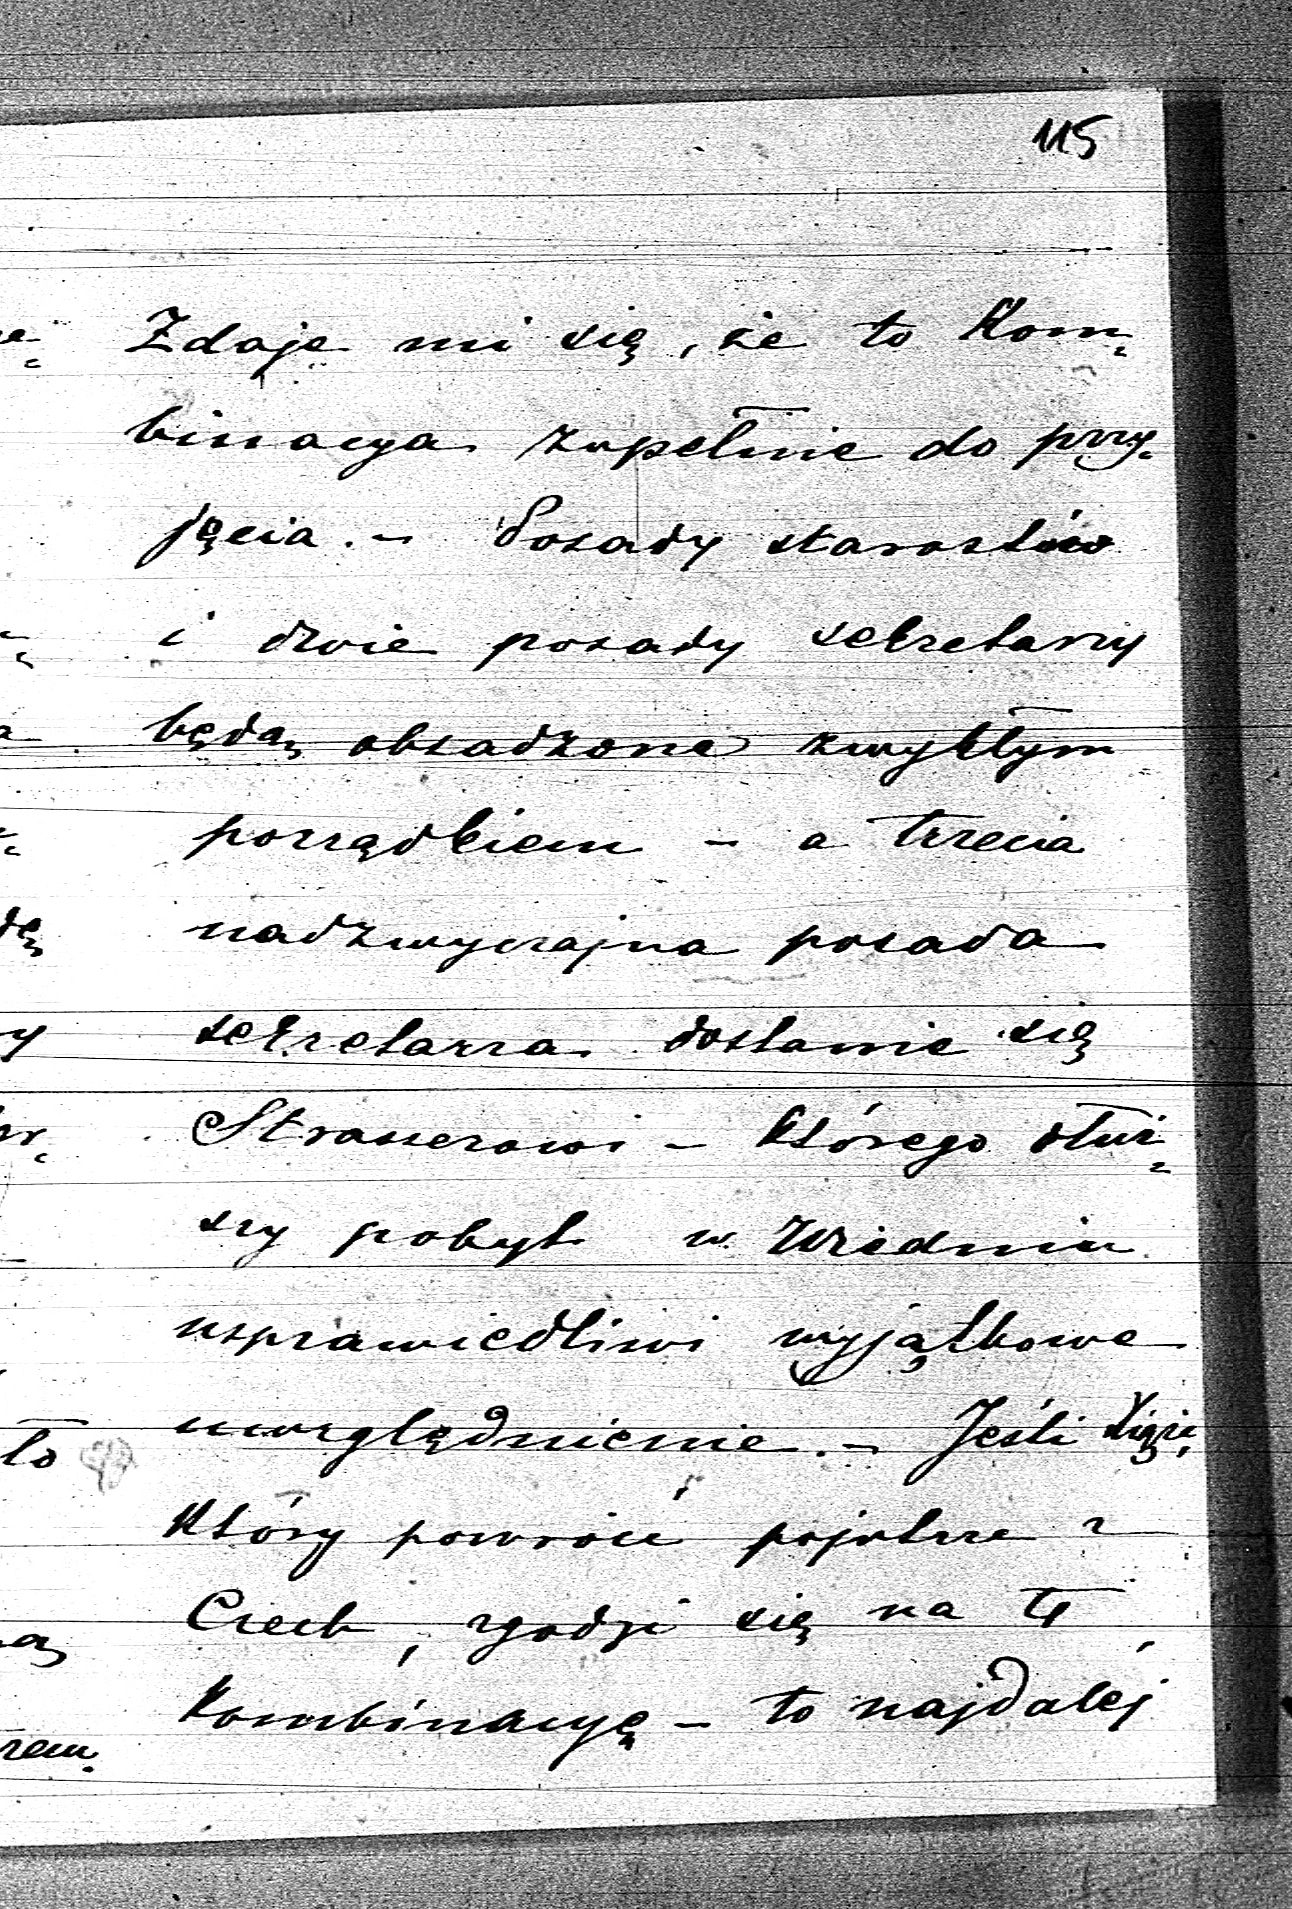 115
Zdaje mi się, że to Kom-
binacya zupełnie do przy-
jęcia. - Posady starostów
i dwie posady sekretarzy
będą obsadzone zwykłym
porządkiem - a trzecia
nadzwyczajna posada
sekretarza dostanie się
Strasserowi - którego dłuż-
szy pobyt w Wiedniu
usprawiedliwi wyjątkowe
uwzględnienie. - Jeśli Książę,
Który powróci pojutrze z
Czech, zgodzi się na tę
Kombinacyę - to najdalej